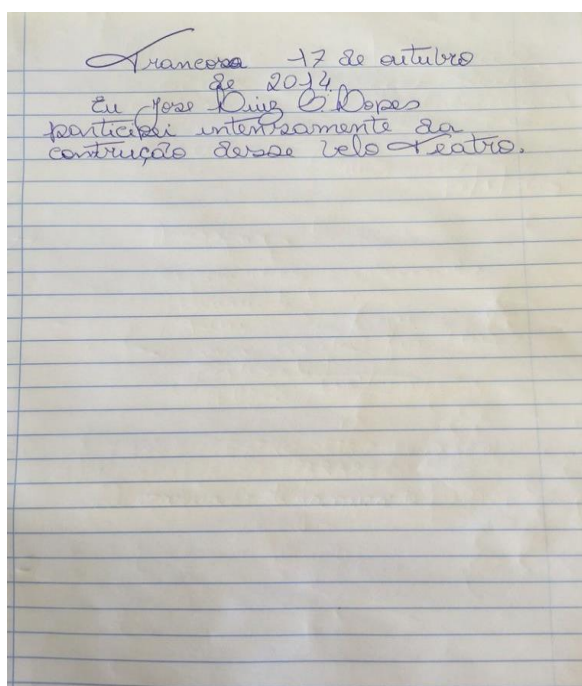 Trancoso 17 de outubro
de 2014
Eu Jose Luiz O. Lopes
participei intensamente da
contrução desse belo Teatro.